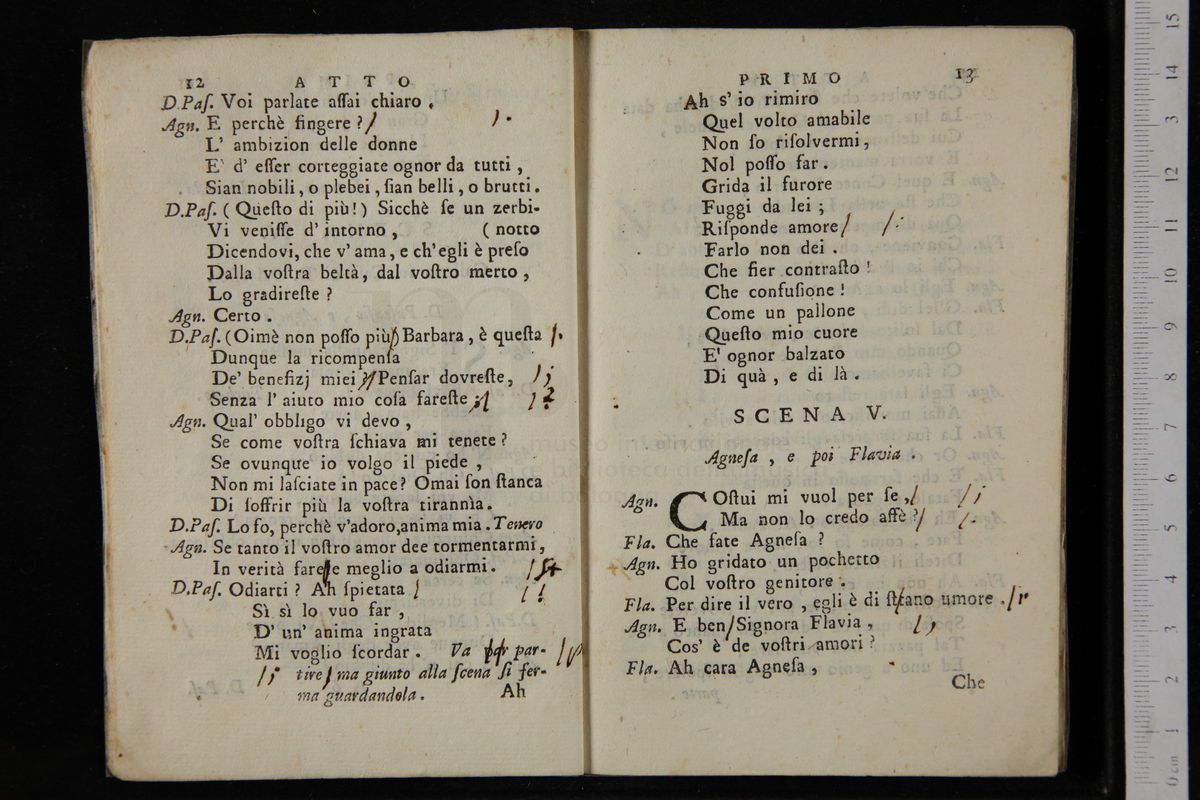 12 ATTO
D.Paſ. Voi parlate aſſai chiaro.
Agn. E perchè fingere?
L' ambizion delle donne
E' d' eſſer corteggiate ognor da tutti,
Sian nobili, o plebei, ſian belli, o brutti.
D.Paſ. (Queſto di più!) Sicchè ſe un zerbi-
Vi veniſſe d' intorno, (notto
Dicendovi, che v' ama, e ch' egli è preſo
Dalla voſtra beltà, dal voſtro merto,
Lo gradireſte?
Agn. Certo.
D.Paſ. (Oimè non poſſo più) Barbara, è queſta
Dunque la ricompenſa
De' benefizj miei? Penſar dovreſte,
Senza l' aiuto mio coſa fareſte;
Agn. Qual' obbligo vi devo,
Se come voſtra ſchiava mi tenete?
Se ovunque io volgo il piede,
Non mi laſciate in pace? Omai ſon ſtanca
Di ſoffrir più la voſtra tirannìa.
D.Paſ. Lo fo, perchè v'adoro, anima mia. Tenero
Agn. Se tanto il voſtro amor dee tormentarmi,
In verità fareſte meglio a odiarmi.
D.Paſ. Odiarti? Ah ſpietata
Sì sì lo vuo far,
D' un' anima ingrata
Mi voglio ſcordar. Va per par-
tire, ma giunto alla ſcena ſi fer-
ma guardandola. Ah
PRIMO 13
Ah s' io rimiro
Quel volto amabile
Non ſo riſolvermi,
Nol poſſo far.
Grida il furore
Fuggi da lei;
Riſponde amore
Farlo non dei.
Che fier contraſto!
Che confuſione!
Come un pallone
Queſto mio cuore
E' ognor balzato
Di quà, e di là.
SCENA V.
Agneſa, e poi Flavia.
Agn. COſtui mi vuol per ſe,
Ma non lo credo affè?
Fla. Che fate Agneſa?
Agn. Ho gridato un pochetto
Col voſtro genitore.
Fla. Per dire il vero, egli è di ſtrano umore.
Agn. E ben Signora Flavia,
Cos' è de voſtri amori?
Fla. Ah cara Agneſa,
Che